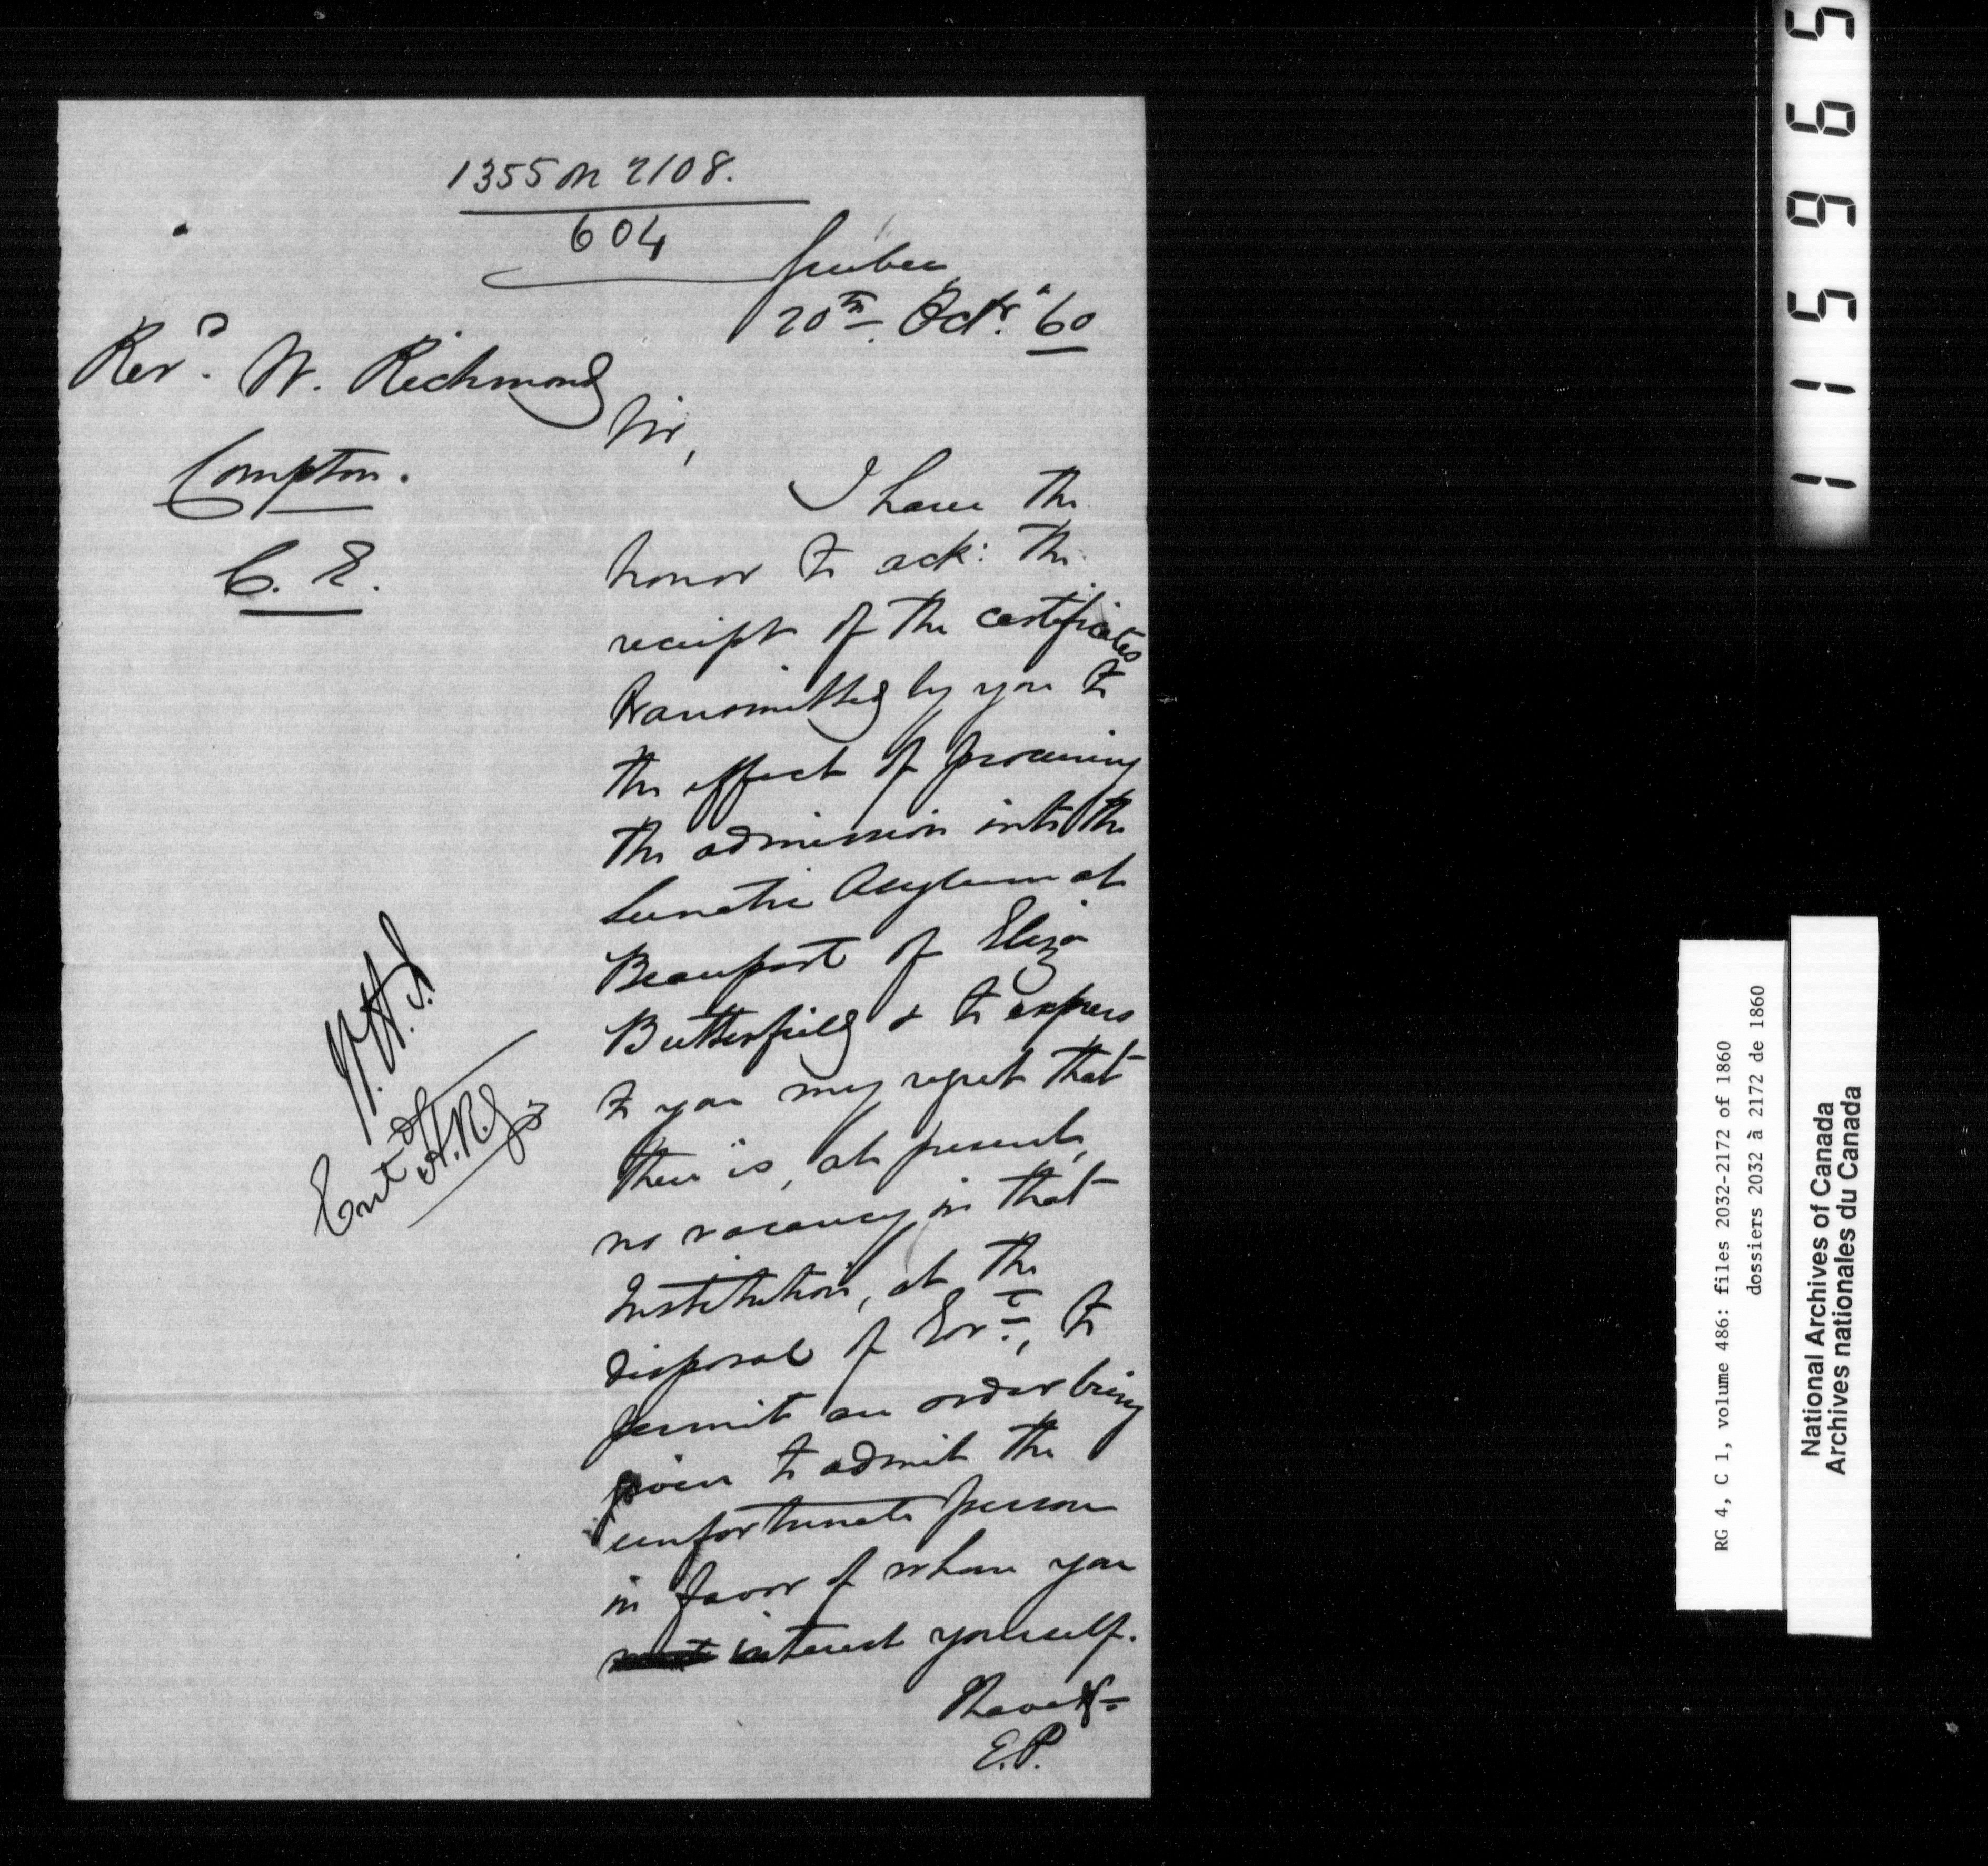 1355 on 2108.
604
Quebec
20th. Octr. 60
Revd. W. Richmond
Compton.
C. E.
Sir,
I have the
honor to ack: the
receipt of the certificates
transmitted by you to
the effect of procuring
the admission into the
Lunatic Asylum at
Beauport of Eliza
Butterfield & to express
to you my regret that
there is, at present,
no vacancy in that
Institution, at the
disposal of Govt., to
permit an order being
given to admit the
unfortunate person
in favor of whom you
interest yourself.
I have &c
E.P.
Entd
115965
RG 4, C 1, volume 486: files 2032-2172 of 1860
dossiers 2032 à 2172 de 1860
National Archives of Canada
Archives nationales du Canada